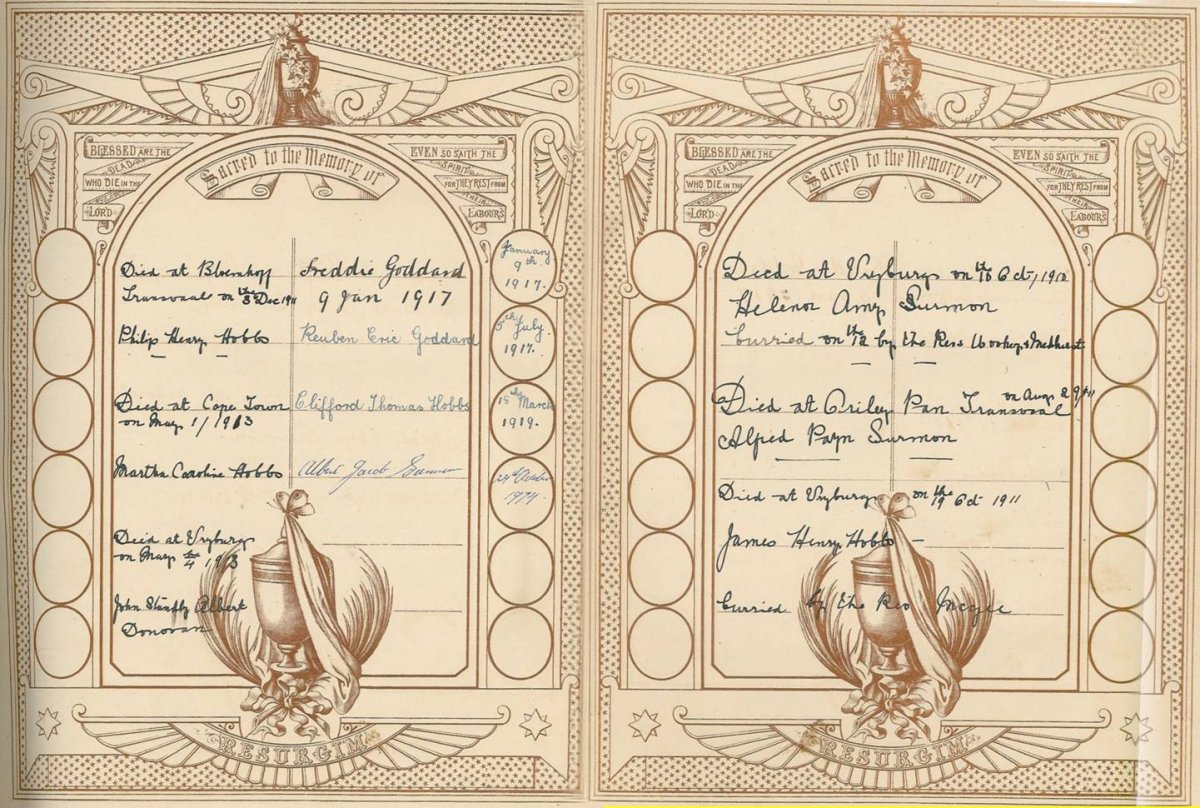 Sacred to the Memory of
BLESSED ARE THE
DEAD
WHO DIE IN THE
LORD
EVEN SO SAITH THE
SPIRIT
FOR THEY REST FROM
THEIR
LABOURS
Died at Bloemhoff
Transvaal on the 3 Dec 1911
Philip Henry Hobbs
Died at Cape Town
on May 1/1913
Martha Caroline Hobbs
Died at Vryburg
on May 4 1913
John Albert
Donovan
Freddie Goddard
9 Jan 1917
Reuben Eric Goddard
Clifford Thomas Hobbs
Albert Jacob Surmon
January
9th
1917.
5th July.
1917.
18th March
1919.
October
RESURGIM
Sacred to the Memory of
BLESSED ARE THE
DEAD
WHO DIE IN THE
LORD
EVEN SO SAITH THE
SPIRIT
FOR THEY REST FROM
THEIR
LABOURS
Died at Vryburg on the 10 Oct, 1910
Helena Amy Surmon
burried on the 12 by the Revs
Died at Pan Transvaal on Aug
Alfred Payn Surmon
Died at Vryburg on the 19 Oct 1911
James Henry Hobbs
burried by the Rev Mcgee
RESURGIM